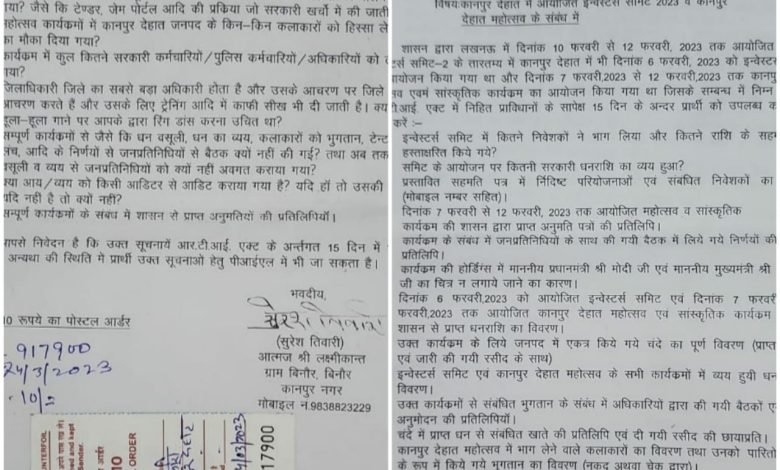 विषय:कानपुर देहात में आयोजित इन्वेस्टर्स समिट 2023 व कानपुर
देहात महोत्सव के संबंध में
शासन द्वारा लखनऊ में दिनांक 10 फरवरी से 12 फरवरी, 2023 तक आयोजित
र्स समिट-2 के तारतम्य में कानपुर देहात में भी दिनांक 6 फरवरी, 2023 को इन्वेस्टर
योजन किया गया था और दिनांक 7 फरवरी,2023 से 12 फरवरी,2023 तक कानपु
व एवमं सांस्कृतिक कार्यक्रम का आयोजन किया गया था जिसके सम्बन्ध में निम्न
आई. एक्ट में निहित प्राविधानों के सापेक्ष 15 दिन के अन्दर प्रार्थी को उपलब्ध क
करें :–
इन्वेस्टर्स समिट में कितने निवेशकों ने भाग लिया और कितने राशि के सह
हस्ताक्षरित किये गये?
समिट के आयोजन पर कितनी सरकारी धनराशि का व्यय हुआ?
प्रस्तावित सहमति पत्र में र्निदिष्ट परियोजनाओं एवं संबंधित निवेशकों का
(मोबाइल नम्बर सहित)।
दिनांक 7 फरवरी से 12 फरवरी, 2023 तक आयोजित महोत्सव व सांस्कृतिक
कार्यक्रम की शासन द्वारा प्राप्त अनुमति पत्रों की प्रतिलिपि।
कार्यक्रम के संबंध में जनप्रतिनिधियों के साथ की गयी बैठक में लिये गये निर्णयों की
प्रतिलिपि।
कार्यक्रम की होर्डिंग्स में माननीय प्रधानमंत्री श्री मोदी जी एवं माननीय मुख्यमंत्री श्री
जी का चित्र न लगाये जाने का कारण।
दिनांक 6 फरवरी,2023 को आयोजित इन्वेस्टर्स समिट एवं दिनांक 7 फरवरी
फरवरी,2023 तक आयोजित कानपुर देहात महोत्सव एवं सांस्कृतिक कार्यक्रम
शासन से प्राप्त धनराशि का विवरण।
उक्त कार्यक्रम के लिये जनपद में एकत्र किये गये चंदे का पूर्ण विवरण (प्राप्त
एवं जारी की गयी रसीद के साथ)
इन्वेस्टर्स समिट एवं कानपुर देहात महोत्सव के सभी कार्यक्रमों में व्यय हुयी धन
विवरण।
उक्त कार्यक्रमों से संबंधित भुगतान के संबंध में अधिकारियों द्वारा की गयी बैठकों ए
अनुमोदन की प्रतिलिपियों।
चंदे में प्राप्त धन से संबंधित खाते की प्रतिलिपि एवं दी गयी रसीद की छायाप्रति।
कानपुर देहात महोत्सव में भाग लेने वाले कलाकारों का विवरण तथा उनको पारिते
के रूप में किये गये भुगतान का विवरण (नकद अथवा चेक द्वारा)।
गया? जैसे कि टेण्डर, जेम पोर्टल आदि की प्रकिया जो सरकारी खर्चो में की जाती
महोत्सव कार्यक्रमों में कानपुर देहात जनपद के किन–किन कलाकारों को हिस्सा ले
का मौका दिया गया?
कार्यक्रम में कुल कितने सरकारी कर्मचारियों/पुलिस कर्मचारियों/अधिकारियों को
गया?
जिलाधिकारी जिले का सबसे बड़ा अधिकारी होता है और उसके आचरण पर जिले
आचरण करते हैं और उसके लिए ट्रेनिंग आदि में काफी सीख भी दी जाती है। क्य
हूला–हूला गाने पर आपके द्वारा रिंग डांस करना उचित था?
सम्पूर्ण कार्यक्रमों से जैसे कि धन वसूली, धन का व्यय, कलाकारों को भुगतान, टेन्ट
मंच, आदि के निर्णयों से जनप्रतिनिधियों से बैठक क्यों नहीं की गई? तथा अब तक
वसूली व व्यय से जनप्रतिनिधियों को क्यों नहीं अवगत कराया गया?
क्या आय/व्यय को किसी आडिटर से आडिट कराया गया है? यदि हाँ तो उसकी
यदि नही है तो क्यों नहीं?
सम्पूर्ण कार्यक्रमों के संबध में शासन से प्राप्त अनुमतियों की प्रतिलिपियॉ।
आपसे निवेदन है कि उक्त सूचनायें आर.टी.आई. एक्ट के अर्न्तगत 15 दिन में
अन्यथा की स्थिति में प्रार्थी उक्त सूचनाओं हेतु पीआईएल में भी जा सकता है।
भवदीय,
सुरेश तिवारी
10 रूपये का पोस्टल आर्डर
(सुरेश तिवारी)
917900
आत्मज श्री लक्ष्मीकान्त
24/3/2023
ग्राम बिनौर, बिनौर
कानपुर नगर
मोबाइल नं.9838823229
10
ORDER
17900